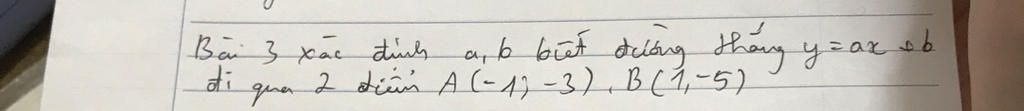 Bài 3 xác định a, b biết đường thẳng y = ax + b
đi qua 2 điểm A (-1; -3), B (1, -5)